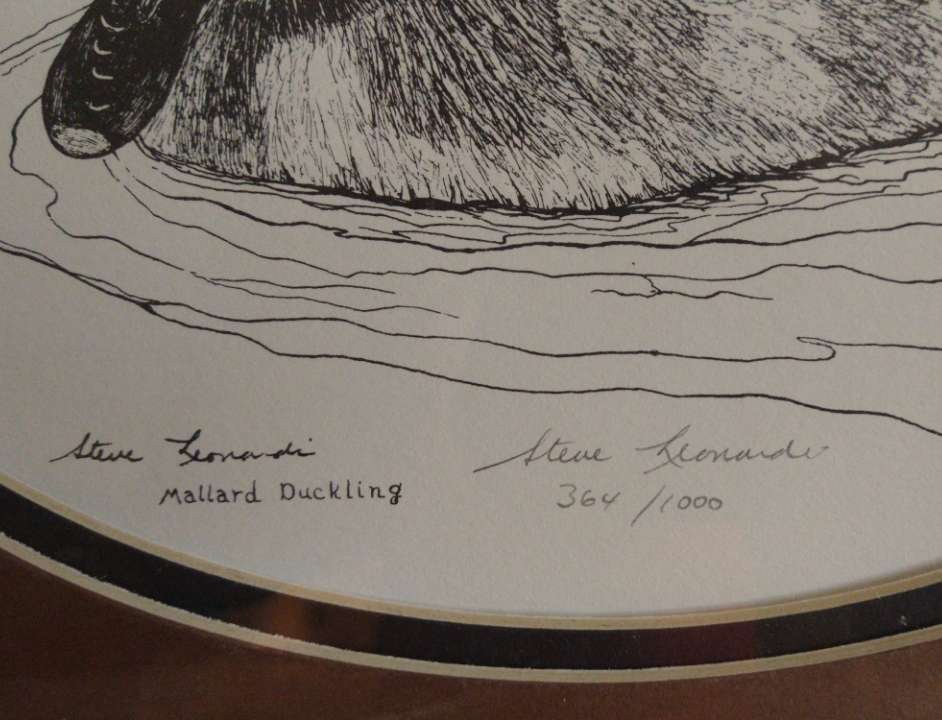 Steve Leonardi
Mallard Duckling
Steve Leonardi
364/1000